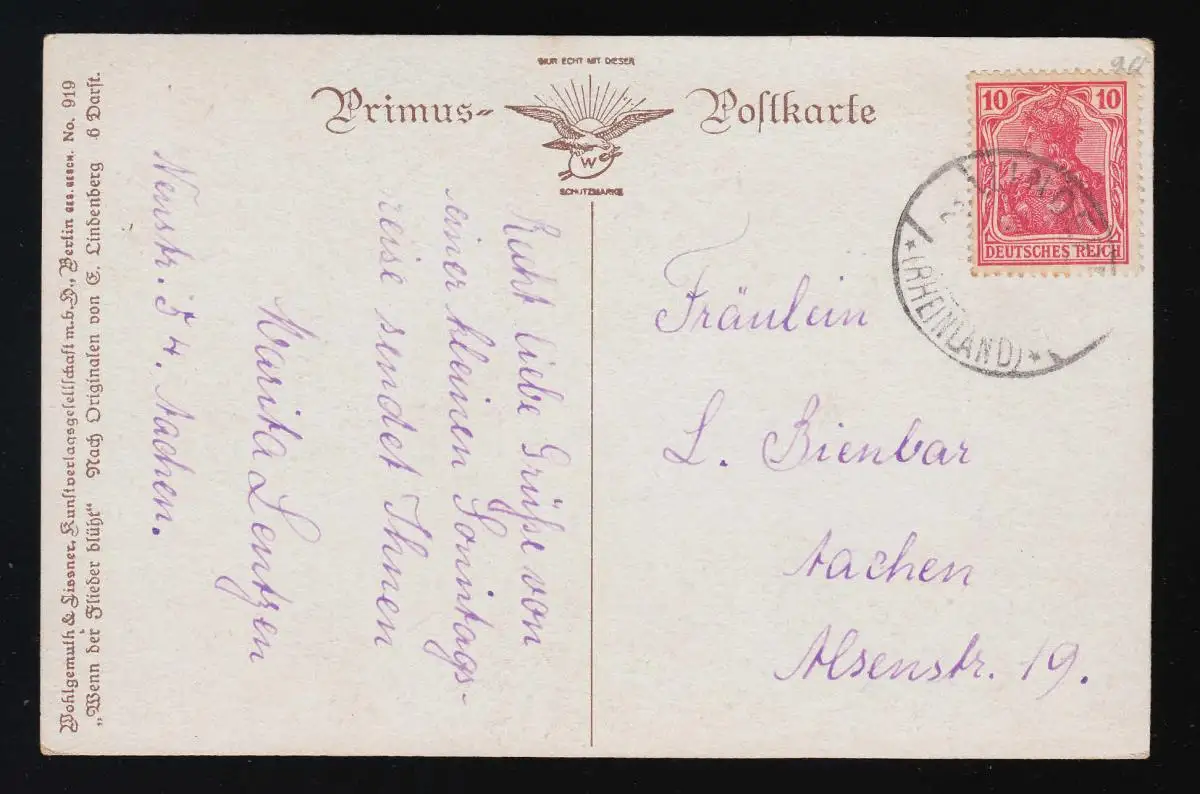 NUR ECHT MIT DIESER
Primus-Postkarte
W
SCHUTZMARKE
10 10
DEUTSCHES REICH
(RHEINLAND)
Recht liebe Grüße von
einer kleinen Sonntags-
reise sendet Ihnen
Marita Lentzen
Neustr. 54. Aachen.
Fräulein
L. Bienbar
Aachen
Alsenstr. 19.
Wohlgemuth & Lissner, Kunstverlagsgesellschaft m.b.H., Berlin GES. GESCH. No. 919
„Wenn der Flieder blüht“ Nach Originalen von E. Lindenberg 6 Darst.